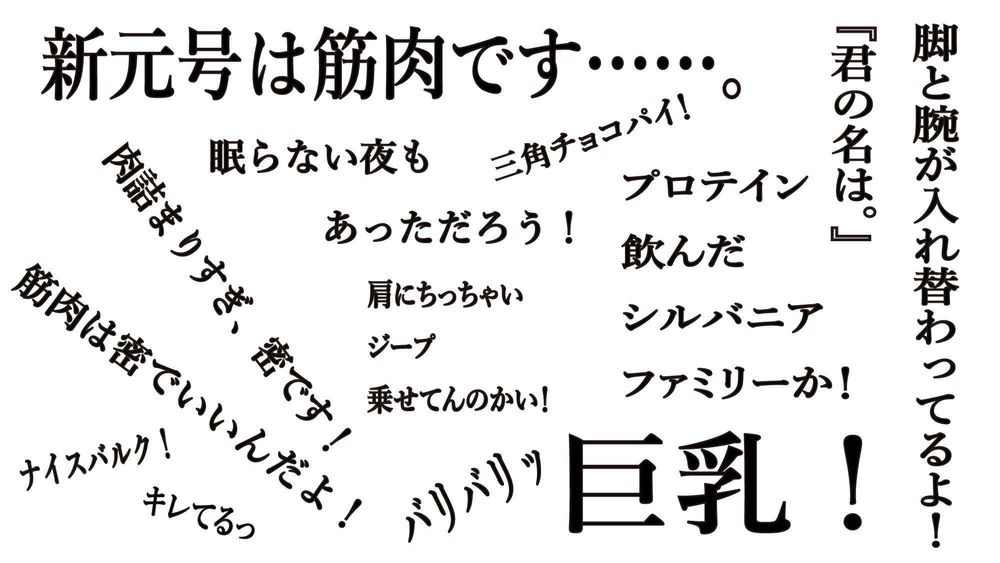 脚と腕が入れ替わってるよ！
『君の名は。』
新元号は筋肉です……。
三角チョコパイ！
眠らない夜も
あっただろう！
プロテイン
飲んだ
シルバニア
ファミリーか！
肉詰まりすぎ、密です！
筋肉は密でいいんだよ！
肩にちっちゃい
ジープ
乗せてんのかい！
ナイスバルク！
キレてるっ
バリバリッ
巨乳！